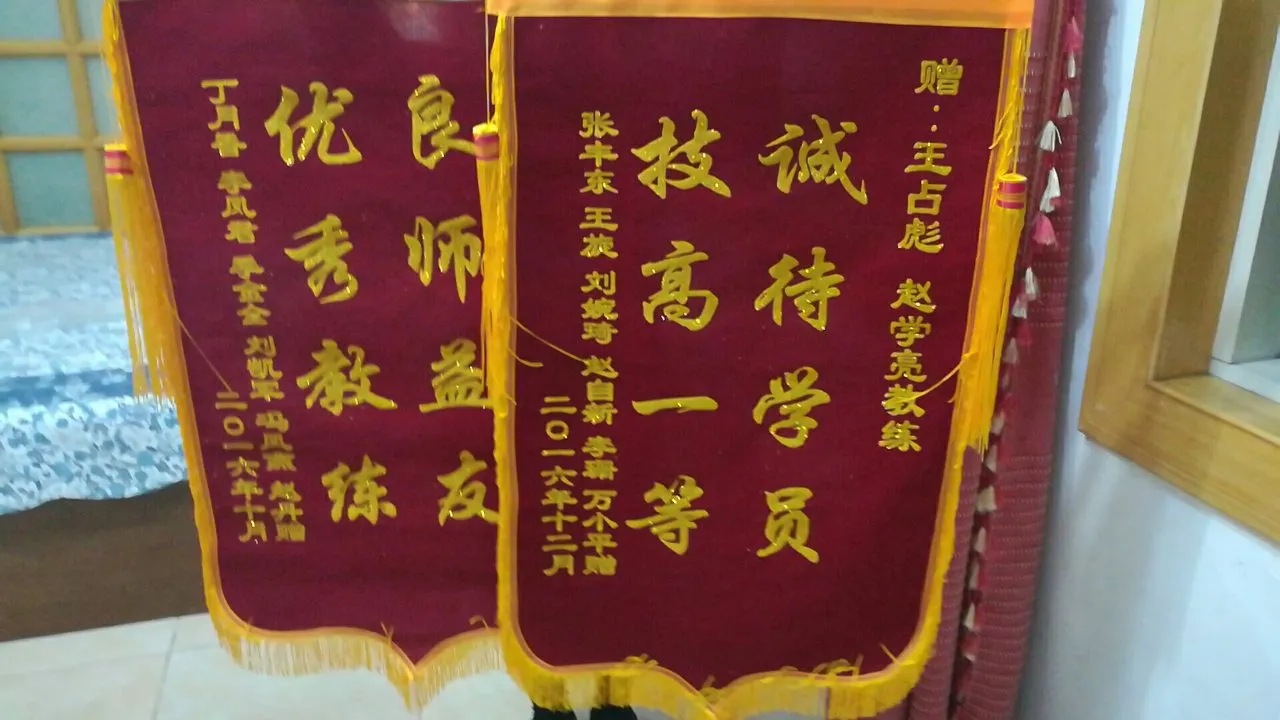 赠：王占彪 赵学亮教练
诚待学员
技高一等
张丰东 王旋 刘婉琦 赵自新 李珊 万小平赠
二〇一六年十二月
良师益友
优秀教练
丁月香 李凤君 李金金 刘凯军 冯凤 赵丹赠
二〇一六年十月